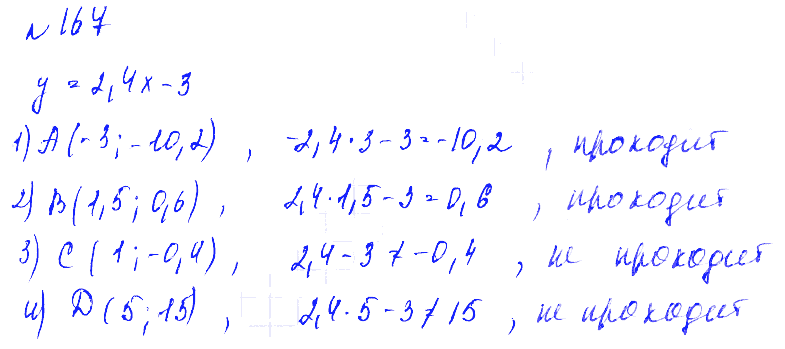 № 167
y = 2,4x - 3
1) A(-3; -10,2), -2,4·3-3=-10,2, проходит
2) B(1,5; 0,6), 2,4·1,5-3=0,6, проходит
3) C(1; -0,4), 2,4-3≠-0,4, не проходит
4) D(5; 15), 2,4·5-3≠15, не проходит